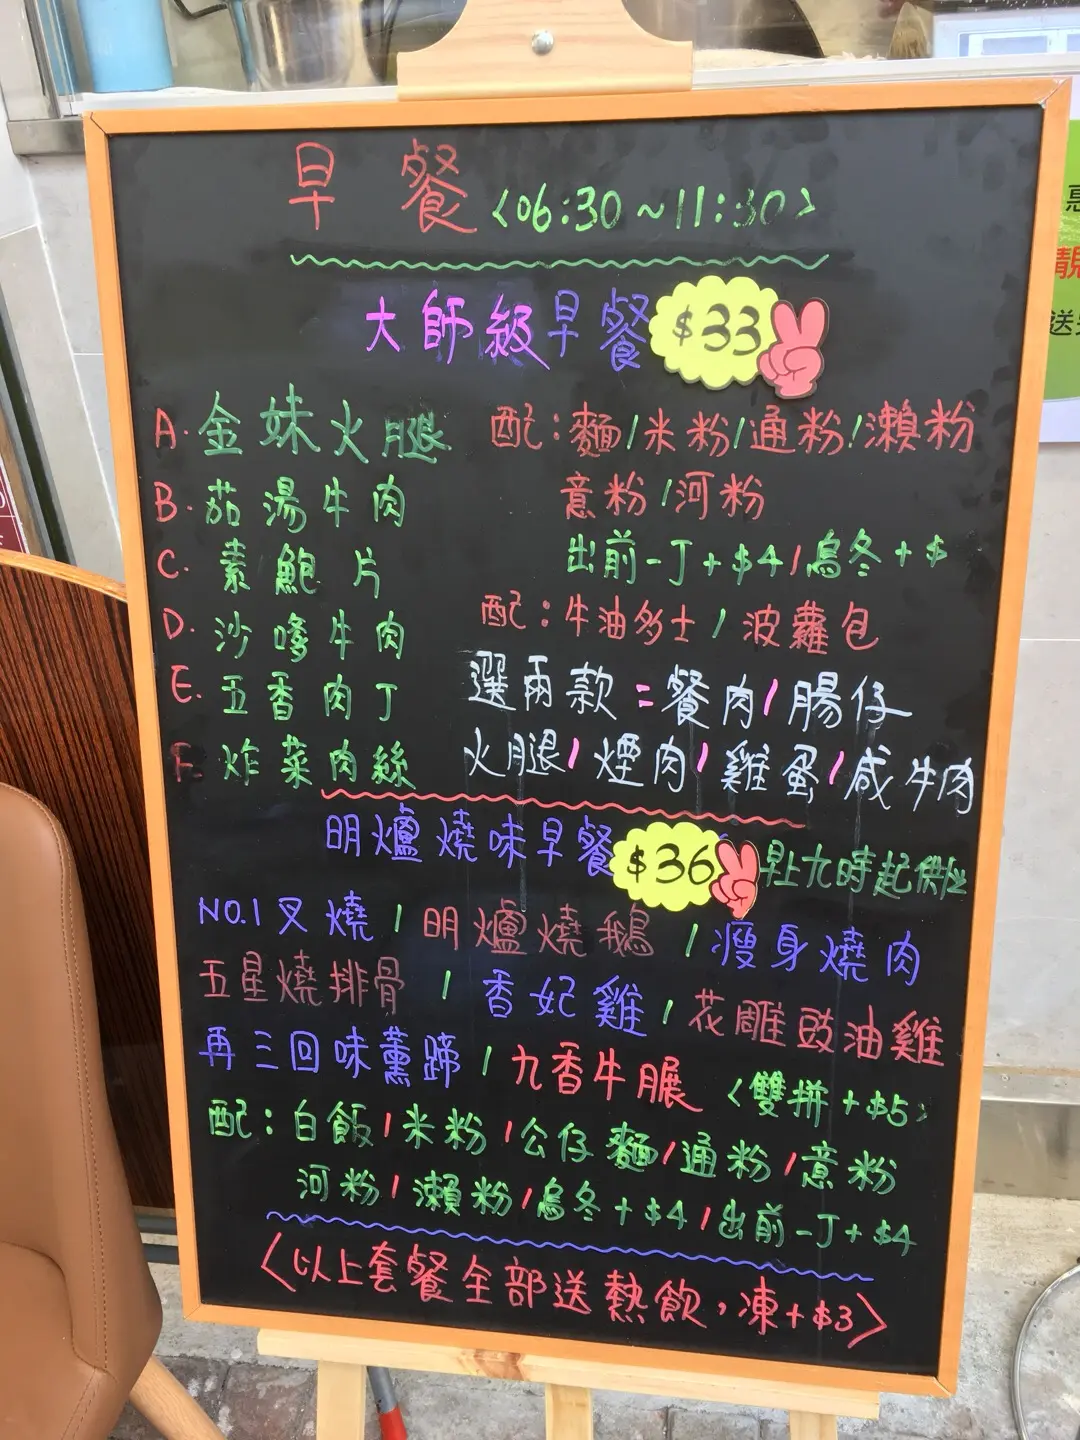 早餐<06:30~11:30>
大師級早餐 $33
A. 金妹火腿 配:麵/米粉/通粉/瀨粉
B. 茄湯牛肉 意粉/河粉
C. 素鮑片 出前一丁+$4/烏冬+$
D. 沙嗲牛肉 配:牛油多士/波蘿包
E. 五香肉丁 選兩款=餐肉/腸仔
F. 炸菜肉絲 火腿/煙肉/雞蛋/咸牛肉
明爐燒味早餐 $36 早上九時起供應
NO.1叉燒/明爐燒鵝/瘦身燒肉
五星燒排骨/香妃雞/花雕豉油雞
再三回味薰蹄/九香牛𦟌<雙拼+$5>
配:白飯/米粉/公仔麵/通粉/意粉
河粉/瀨粉/烏冬+$4/出前一丁+$4
<以上套餐全部送熱飲,凍+$3>
惠
送